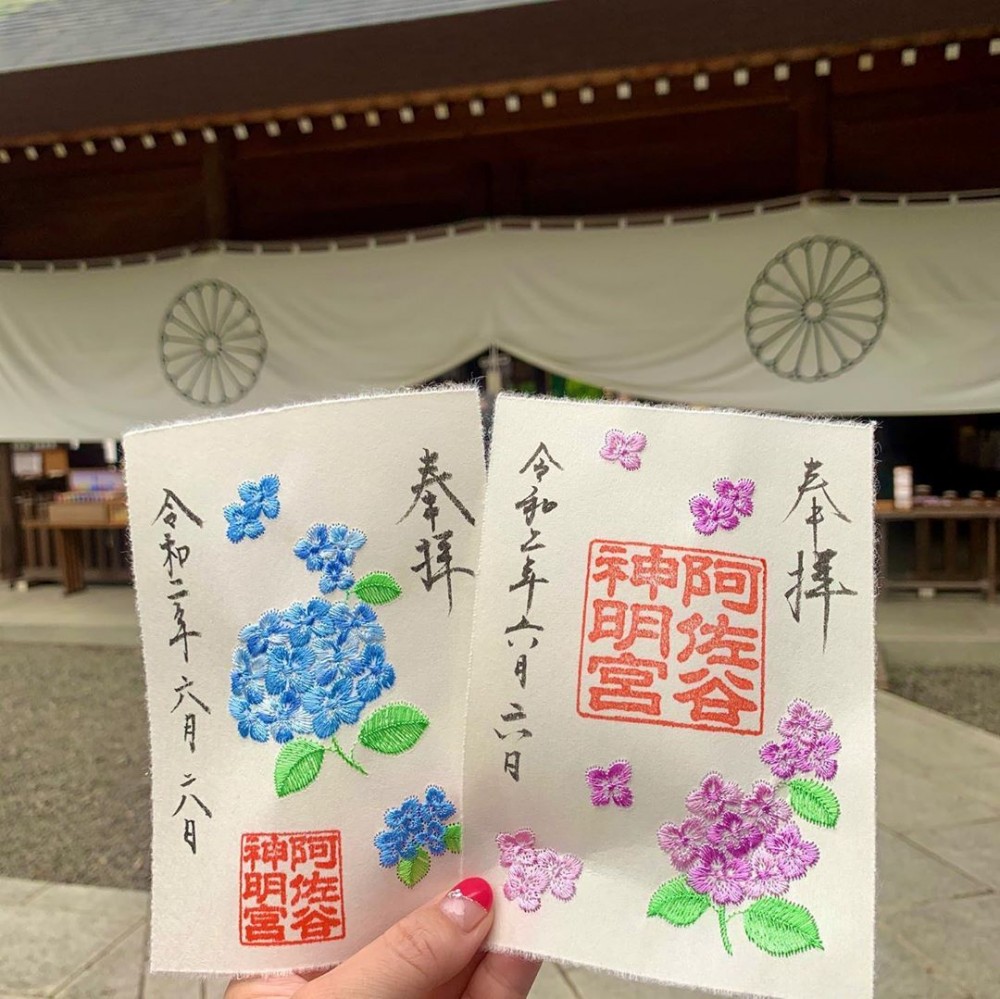 奉拝
阿佐谷
神明宮
令和二年六月二六日
奉拝
阿佐谷
神明宮
令和二年六月二八日